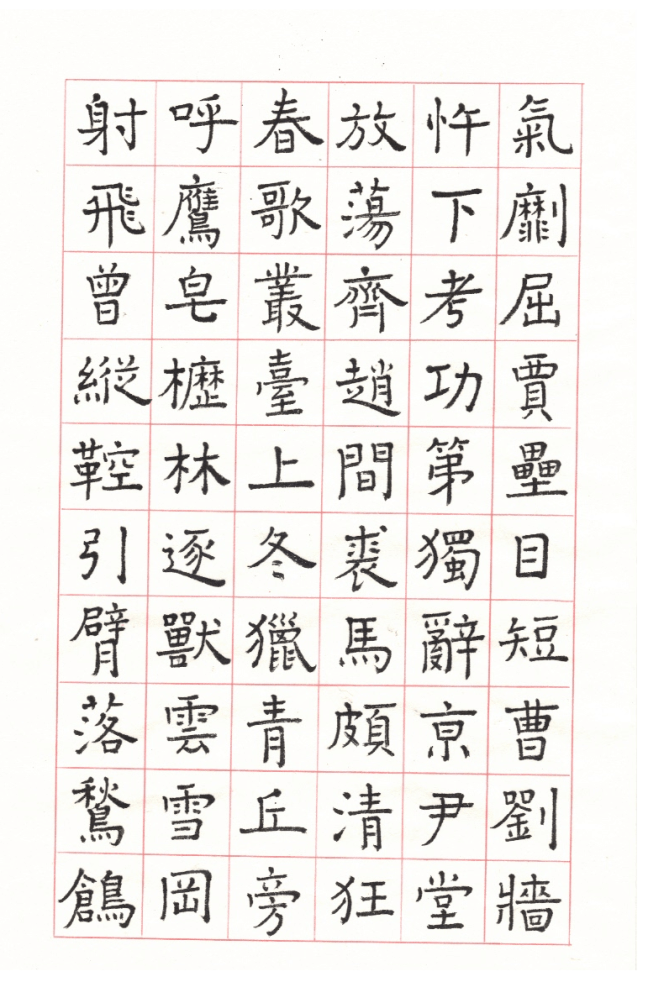 氣劘屈賈壘目短曹劉牆
忤下考功第獨辭亰尹堂
放蕩齊趙間裘馬頗清狂
春歌叢臺上冬獵青丘旁
呼鷹皂櫪林逐獸雲雪岡
射飛曾縱鞚引臂落鶖鶬